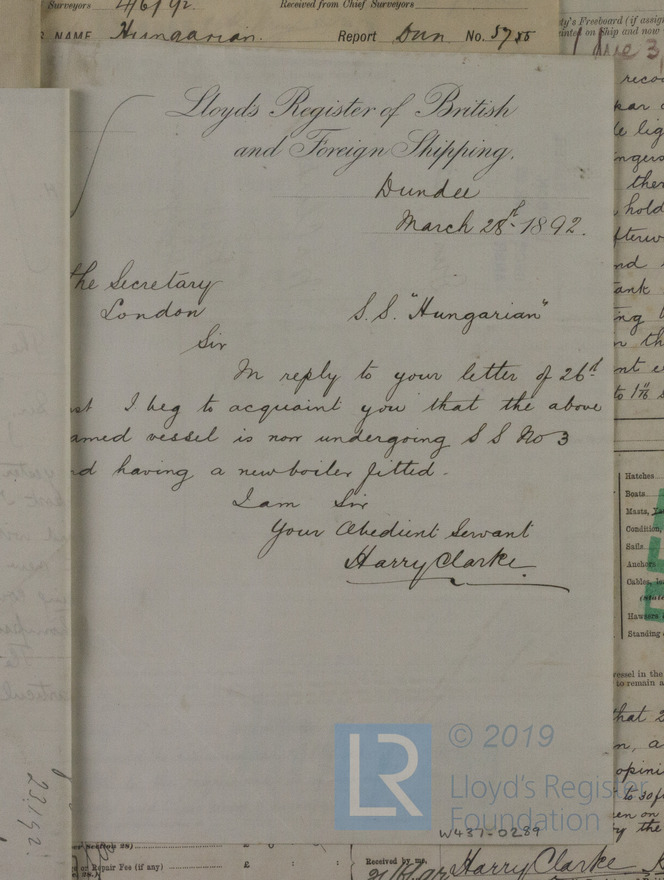 Surveyors 4/6/92. Received from Chief Surveyors
NAME Hungarian. Report Dun No. 5755
Lloyd's Register of British
and Foreign Shipping.
Dundee
March 28th 1892.
the Secretary
London
S.S. "Hungarian"
Sir
In reply to your letter of 26th
I beg to acquaint you that the above
amed vessel is now undergoing S S No 3
d having a new boiler fitted.
I am Sir
Your Obedient Servant
Harry Clarke
Hatches
Boats
Masts,
Condition,
Sails
Anchors
Cables,
Hawsers
Standing
vessel in the
to remain a
that 2
opini
to 30f
© 2019
LR
Lloyd's Register
Foundation
W437-0289
or Repair Fee (if any) £
Received by me,
Harry Clarke